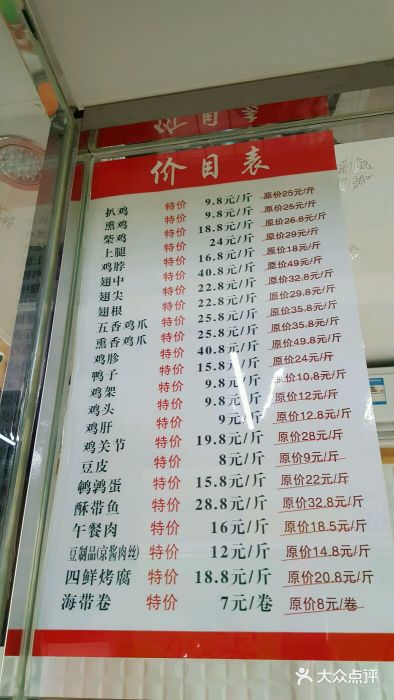 价目表
扒鸡 特价 9.8元/斤 原价25元/斤
熏鸡 特价 9.8元/斤 原价25元/斤
柴鸡 特价 18.8元/斤 原价26.8元/斤
上腿 特价 24元/斤 原价29元/斤
鸡脖 特价 16.8元/斤 原价18元/斤
翅中 特价 40.8元/斤 原价49元/斤
翅尖 特价 22.8元/斤 原价32.8元/斤
翅根 特价 22.8元/斤 原价29.8元/斤
五香鸡爪 特价 25.8元/斤 原价35.8元/斤
熏香鸡爪 特价 25.8元/斤 原价35.8元/斤
鸡胗 特价 40.8元/斤 原价49.8元/斤
鸭子 特价 15.8元/斤 原价24元/斤
鸡架 特价 9.8元/斤 原价10.8元/斤
鸡头 特价 9.8元/斤 原价12元/斤
鸡肝 特价 9元/斤 原价12.8元/斤
鸡关节 特价 19.8元/斤 原价28元/斤
豆皮 特价 8元/斤 原价9元/斤
鹌鹑蛋 特价 15.8元/斤 原价22元/斤
酥带鱼 特价 28.8元/斤 原价32.8元/斤
午餐肉 特价 16元/斤 原价18.5元/斤
豆制品(京酱肉丝) 特价 12元/斤 原价14.8元/斤
四鲜烤腐 特价 18.8元/斤 原价20.8元/斤
海带卷 特价 7元/卷 原价8元/卷
大众点评